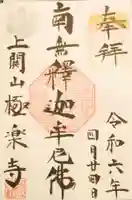 奉拝
令和六年
四月廿四日
南無釋迦牟尼佛
上関山極楽寺